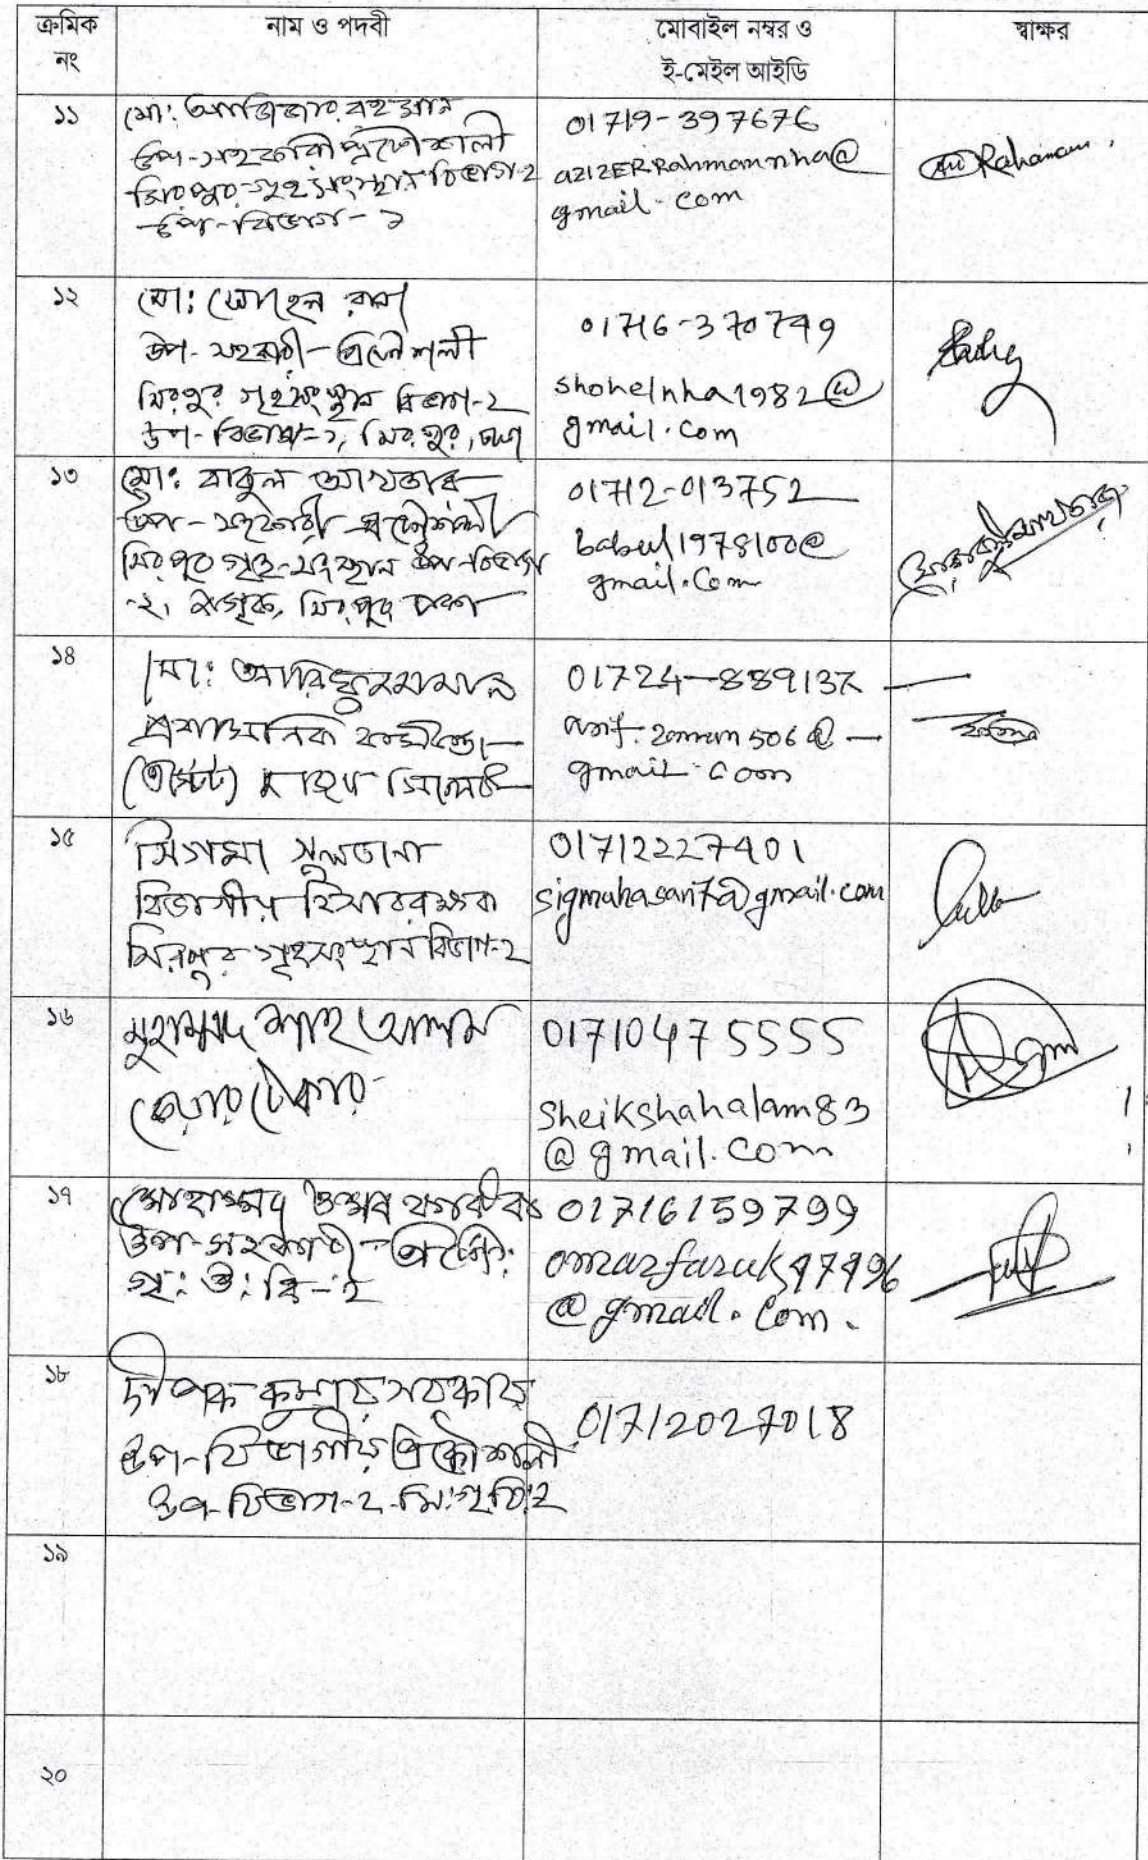 ক্রমিক নং
নাম ও পদবী
মোবাইল নম্বর ও
ই-মেইল আইডি
স্বাক্ষর
১১
মো: আজিজার রহমান
উপ-সহকারী প্রকৌশলী
মিরপুর গৃহ সংস্থান বিভাগ-২
উপ-বিভাগ-১
01719-397676
azizERRahmannha@
gmail.com
Rahaman
১২
মো: সোহেল রানা
উপ-সহকারী-প্রকৌশলী
মিরপুর গৃহসংস্থান বিভাগ-২
উপ-বিভাগ-১, মিরপুর, ঢাকা
01716-370749
shohelnha1982@
gmail.com
১৩
মো: বাবুল আখতার
উপ-সহকারী প্রকৌশলী
মিরপুর গৃহ-সংস্থান উপ-বিভাগ
-২, জাগৃক, মিরপুর ঢাকা
01712-013752
babul1978100@
gmail.com
১৪
মো: আরিফুজ্জামান
প্রশাসনিক কর্মকর্তা
সিলেট
01724-889137
506@
gmail.com
১৫
সিগমা সুলতানা
বিভাগীয় হিসাবরক্ষক
মিরপুর গৃহসংস্থান বিভাগ-২
01712227401
sigmahasan7@gmail.com
১৬
মুহাম্মদ শাহ আলম
কেয়ার টেকার
01710475555
sheikshahalam83
@gmail.com
১৭
মোহাম্মদ ওমর ফারুক
উপ-সহকারী-প্রকৌ:
01716159799
omarfaruk97996
@gmail.com.
১৮
দীপক কুমার সরকার
উপ-বিভাগীয় প্রকৌশলী
উপ-বিভাগ-২-মি:গৃ:বি:২
01712027018
১৯
২০